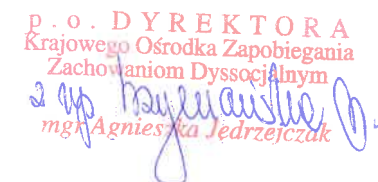 p. o. DYREKTORA
Krajowego Ośrodka Zapobiegania
Zachowaniom Dyssocjalnym
z up
mgr Agnieszka Jędrzejczak